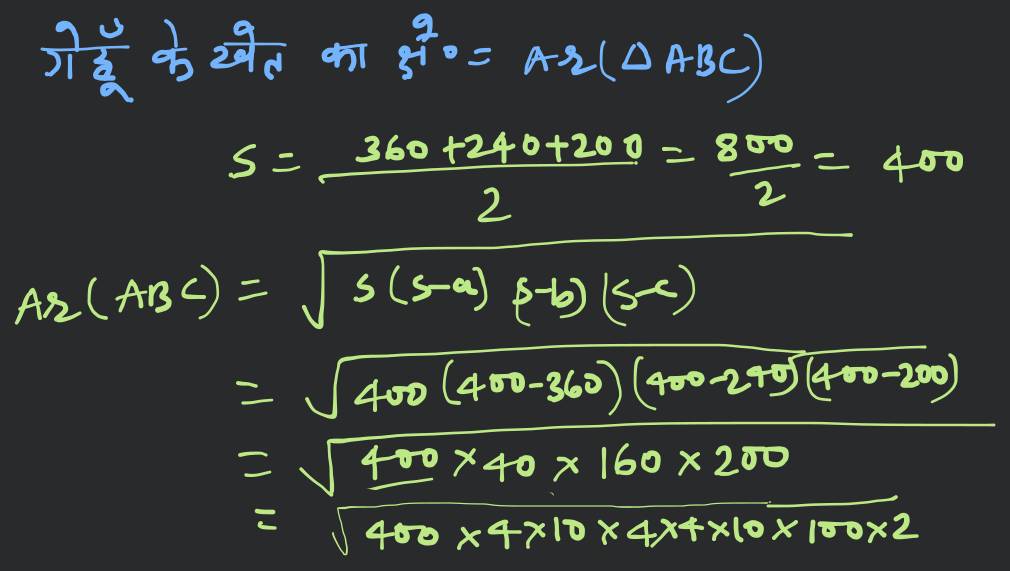 गेहूँ के खेत का क्षे० = Ar(△ABC)
S = (360+240+200)/2 = 800/2 = 400
Ar(ABC) = √(s(s-a)(s-b)(s-c))
= √(400(400-360)(400-240)(400-200))
= √(400×40×160×200)
= √(400×4×10×4×4×10×100×2)